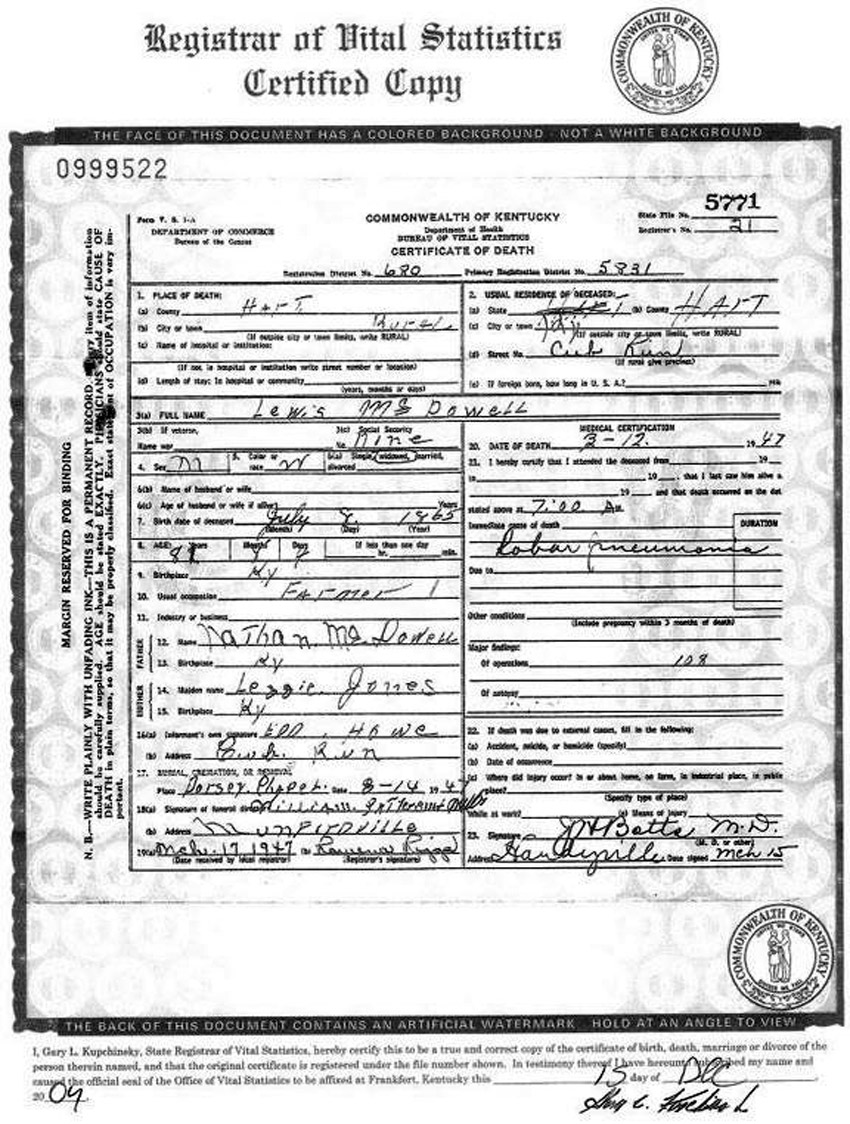 Registrar of Vital Statistics
Certified Copy
COMMONWEALTH OF KENTUCKY
THE FACE OF THIS DOCUMENT HAS A COLORED BACKGROUND - NOT A WHITE BACKGROUND
0999522
5771
Form V. S. 1-A
COMMONWEALTH OF KENTUCKY
State File No.
DEPARTMENT OF COMMERCE
Department of Health
Registrar's No. 21
Bureau of the Census
BUREAU OF VITAL STATISTICS
CERTIFICATE OF DEATH
Registration District No. 680 Primary Registration District No. 5831
MARGIN RESERVED FOR BINDING
N. B.—WRITE PLAINLY WITH UNFADING INK—THIS IS A PERMANENT RECORD. Every item of information
should be carefully supplied. AGE should be stated EXACTLY. PHYSICIANS should state CAUSE OF
DEATH in plain terms, so that it may be properly classified. Exact statement of OCCUPATION is very im-
portant.
1. PLACE OF DEATH:
(a) County HART
(b) City or town Rural
(If outside city or town limits, write RURAL)
(c) Name of hospital or institution:
(If not in hospital or institution write street number or location)
(d) Length of stay: In hospital or community
(years, months or days)
2. USUAL RESIDENCE OF DECEASED:
(a) State (b) County HART
(c) City or town
(If outside city or town limits, write RURAL)
(d) Street No. Cub Run
(If rural give precinct)
(e) If foreign born, how long in U. S. A.?
3(a) FULL NAME Lewis McDowell
3(b) If veteran, 3(c) Social Security
Name war No. None
4. Sex M 5. Color or race W 6(a) Single, widowed, married, divorced
6(b) Name of husband or wife
6(c) Age of husband or wife if alive Years
7. Birth date of deceased July 9 1865
(Month) (Day) (Year)
8. AGE: Years Months Days If less than one day
81 8 hr. min.
9. Birthplace Ky
10. Usual occupation Farmer
11. Industry or business
FATHER
12. Name Nathan McDowell
13. Birthplace Ky
MOTHER
14. Maiden name Lezzie Jones
15. Birthplace Ky
16(a) Informant's own signature EDD HOWE
(b) Address Cub Run
17. BURIAL, CREMATION, OR REMOVAL
Place Dorsey Date 3-14 1947
18(a) Signature of funeral director William
(b) Address Munfordville
19(a) Mch. 17, 1947 Rowena
(Date received by local registrar) (Registrar's signature)
MEDICAL CERTIFICATION
20. DATE OF DEATH 3-12. 1947
21. I hereby certify that I attended the deceased from 19
to 19 , that I last saw him alive
19 and that death occurred on the dat
stated above at 7:00 AM.
Immediate cause of death DURATION
Lobar pneumonia
Due to
Other conditions
(Include pregnancy within 3 months of death)
Major findings:
Of operations 108
Of autopsy
22. If death was due to external causes, fill in the following:
(a) Accident, suicide, or homicide (specify)
(b) Date of occurrence
(c) Where did injury occur? In or about home, on farm, in industrial place, in public
place?
(Specify type of place)
While at work? (e) Means of injury
23. Signature Botts M.D.
(M. D. or other)
Address Hardyville Date signed Mch 15
COMMONWEALTH OF KENTUCKY
THE BACK OF THIS DOCUMENT CONTAINS AN ARTIFICIAL WATERMARK HOLD AT AN ANGLE TO VIEW
I, Gary L. Kupchinsky, State Registrar of Vital Statistics, hereby certify this to be a true and correct copy of the certificate of birth, death, marriage or divorce of the
person therein named, and that the original certificate is registered under the file number shown. In testimony thereof I have hereunto subscribed my name and
caused the official seal of the Office of Vital Statistics to be affixed at Frankfort, Kentucky this 15 day of Dec
2004